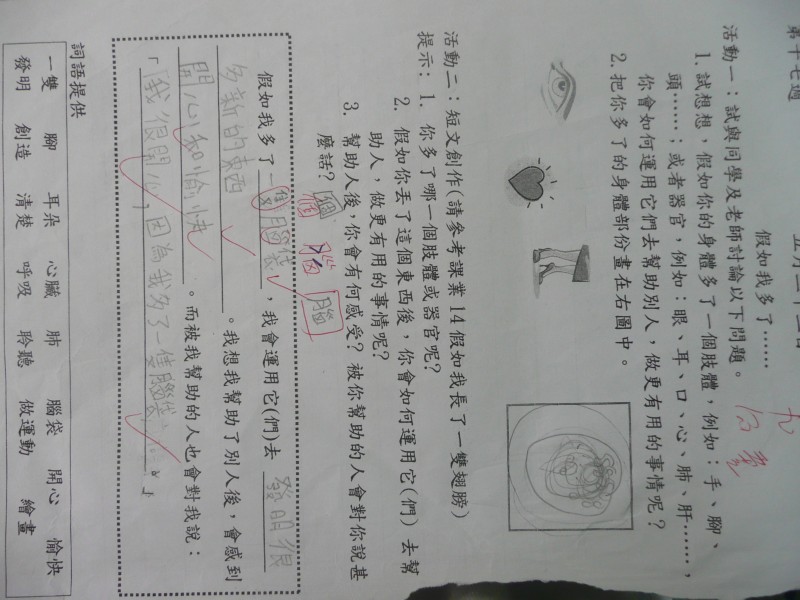 第十七週
五月二十二日
假如我多了……
活動一：試與同學及老師討論以下問題。
1. 試想想，假如你的身體多了一個肢體，例如：手、腳、
頭……；或者器官，例如：眼、耳、口、心、肺、肝……，
你會如何運用它們去幫助別人，做更有用的事情呢？
2. 把你多了的身體部份畫在右圖中。
活動二：短文創作(請參考課業 14 假如我長了一雙翅膀)
提示： 1. 你多了哪一個肢體或器官呢？
2. 假如你丟了這個東西後，你會如何運用它(們) 去幫
助人，做更有用的事情呢？
3. 幫助人後，你會有何感受？被你幫助的人會對你說甚
麼話？
個 腦
假如我多了一隻腦袋，我會運用它(們)去 發明很
多新的東西 。我想我幫助了別人後，會感到
開心和愉快 。而被我幫助的人也會對我說：
「我很開心，因為我多了一隻腦袋。」
詞語提供
一雙 腳 耳朵 心臟 肺 腦袋 開心 愉快
發明 創造 清楚 呼吸 聆聽 做運動 繪畫